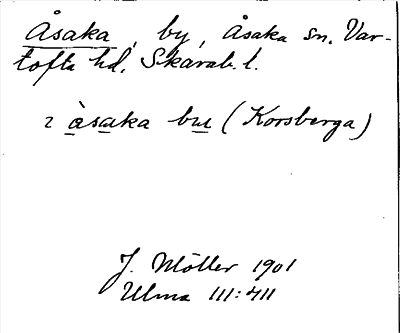 Åsaka, by, Åsaka sn. Var-
tofta hd, Skarab. l.
2 åsaka bue (Korsberga)
J. Möller 1901
Ulma 111:411